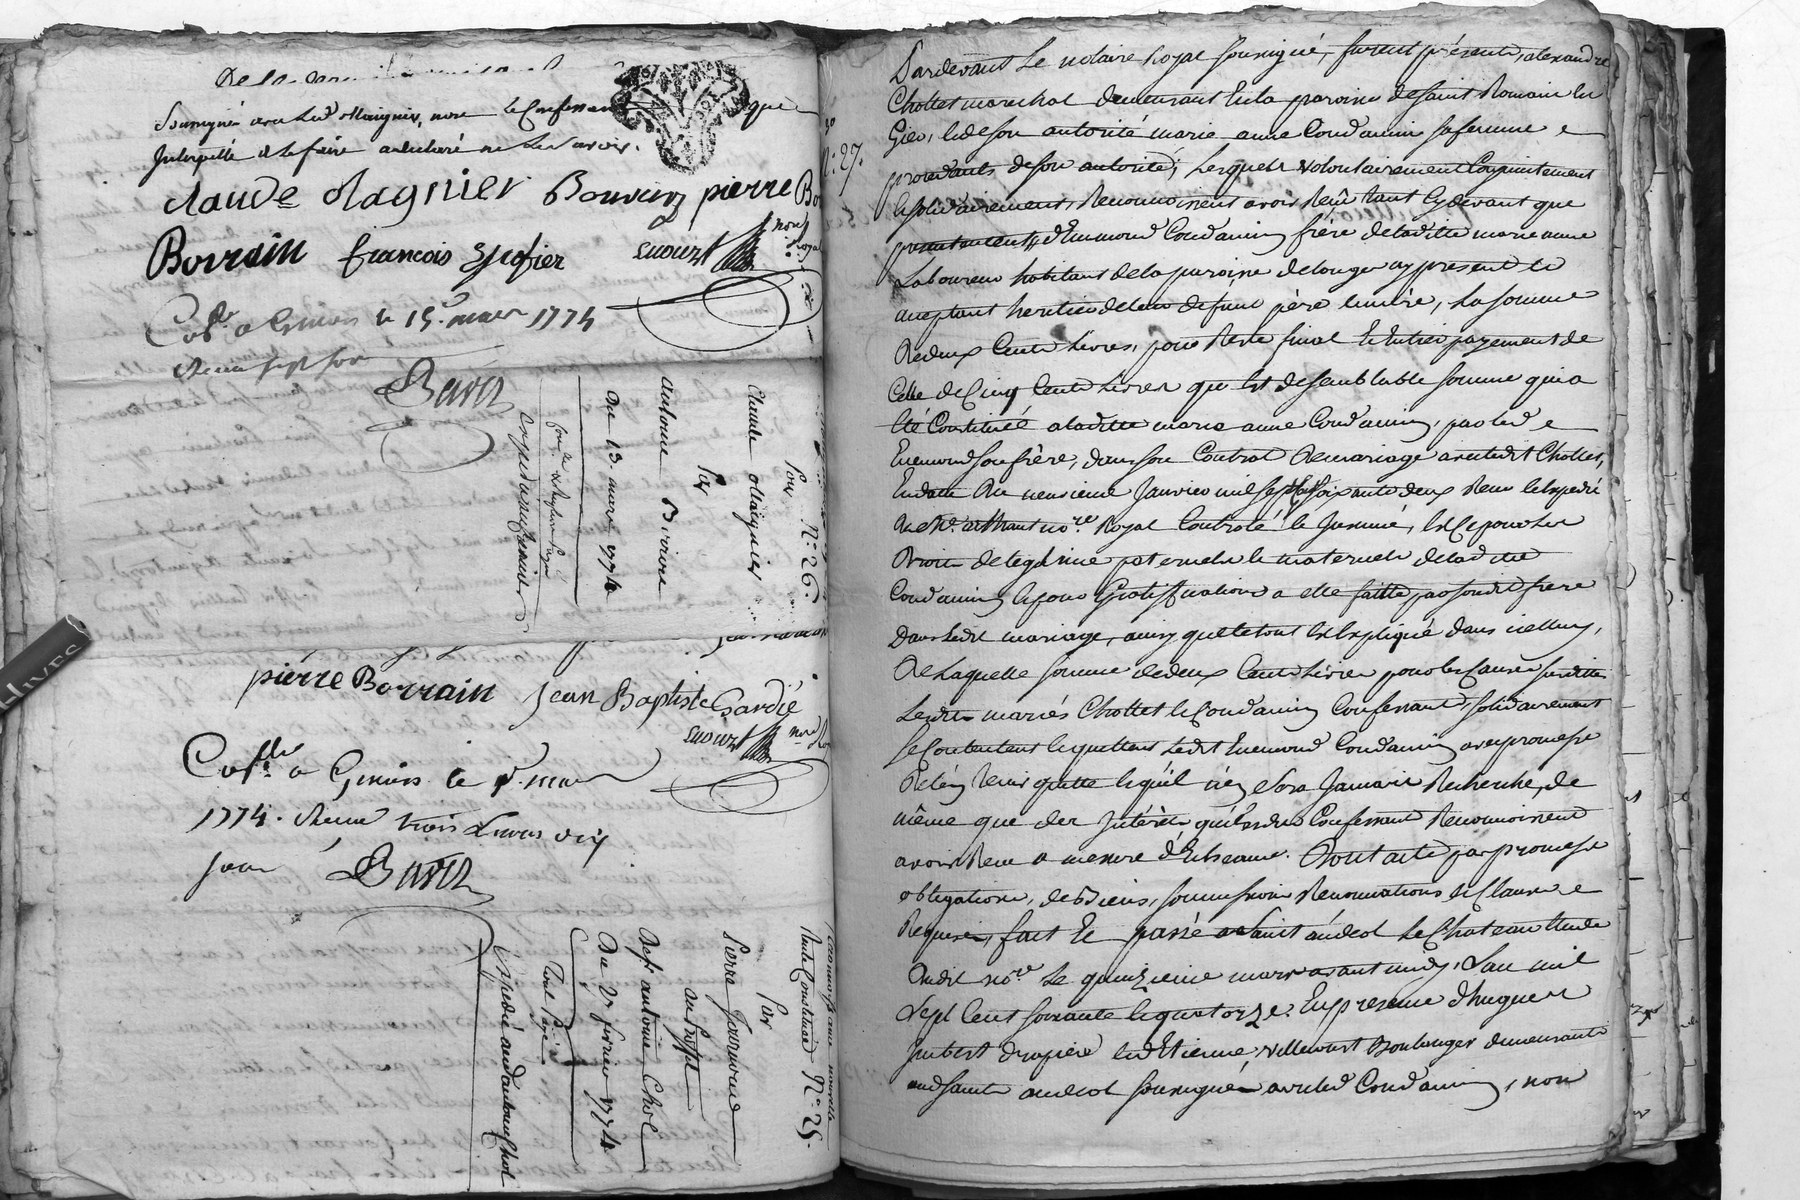 soussignés avec led Magnier, non le Confessant
Interpellé de le faire a déclaré ne le Savoir.
claude Magnier Bonvion pierre
Borrain françois
nore Royal
Colé a Givors le 15e mars 1774
Recu sept sous
Baron
N.° 26.
Pour
Claude Magnier
Par
Antoine Bivione
Du 13 mars 1774
pierre Borrain Jean Baptiste Gardié
nore
Colé a Givors le mars
1774. Recu trois Livres dix
sous
Baron
N.° 25.
Par
Pierre
au proffit
de sr antoine Chol
Du 27 fevrier 1774
Expedié aud antoine Chol
N.° 27.
Pardevant Le notaire Royal soussigné, furent présents, alexandre
Chollet marechal demeurant En la paroisse de Saint Romain En
Gier, & de son autorité marie anne Condamin sa femme
procedants de son autorité, Lesquels volontairement Conjointement
& solidairement, Reconnoissent avoir Reçû tant cy devant que
presentement, d'Ennemond Condamin frère de laditte marie anne
Laboureur habitant de la paroisse de Longes cy present &
acceptant heritier de leur defunt père & mère, La somme
de deux Cents Livres, pour Reste final & Entier payement de
Celle de Cinq Cents Livres qui Est de semblable somme qui a
Eté Constituée a laditte marie anne Condamin, par led
Ennemond son frère, dans son Contrat de mariage avec ledit Chollet,
En date du neuvieme Janvier mil sept Cent soixante deux Recu & Expedié
nore Royal Controlé le Jour, & Ce pour Les
Droits de legitime paternels & maternels de la ditte
Condamin & pour Gratiffications a elle faitte par son dit frere
dans Ledit mariage, ainsy que le tout Est Expliqué dans icelluy,
De Laquelle somme de deux Cents Livres pour les Causes susdittes
Lesdits mariés Chollet & Condamin Confessants solidairement
se Contentent & quittent Ledit Ennemond Condamin avec promesse
de l'en tenir quitte & qu'il n'en sera Jamais Recherché, de
même que des Intérêts qu'Lesdits Confessants Reconnoissent
avoir Recu a mesure d'Echeance. Dont acte par promesse
obligations, de Biens, soumissions Renonciations & Clauses
Requises, fait & passé a Saint andeol Le Chateau Etude
dudit nore Le quinzieme mars avant midy, L'an mil
Sept Cent soixante & quatorze. En presence d'hugues
Jmbert drapier & d'Etienne Villecourt Boulanger demeurants
aud saint andeol soussignés avec led Condamin, non